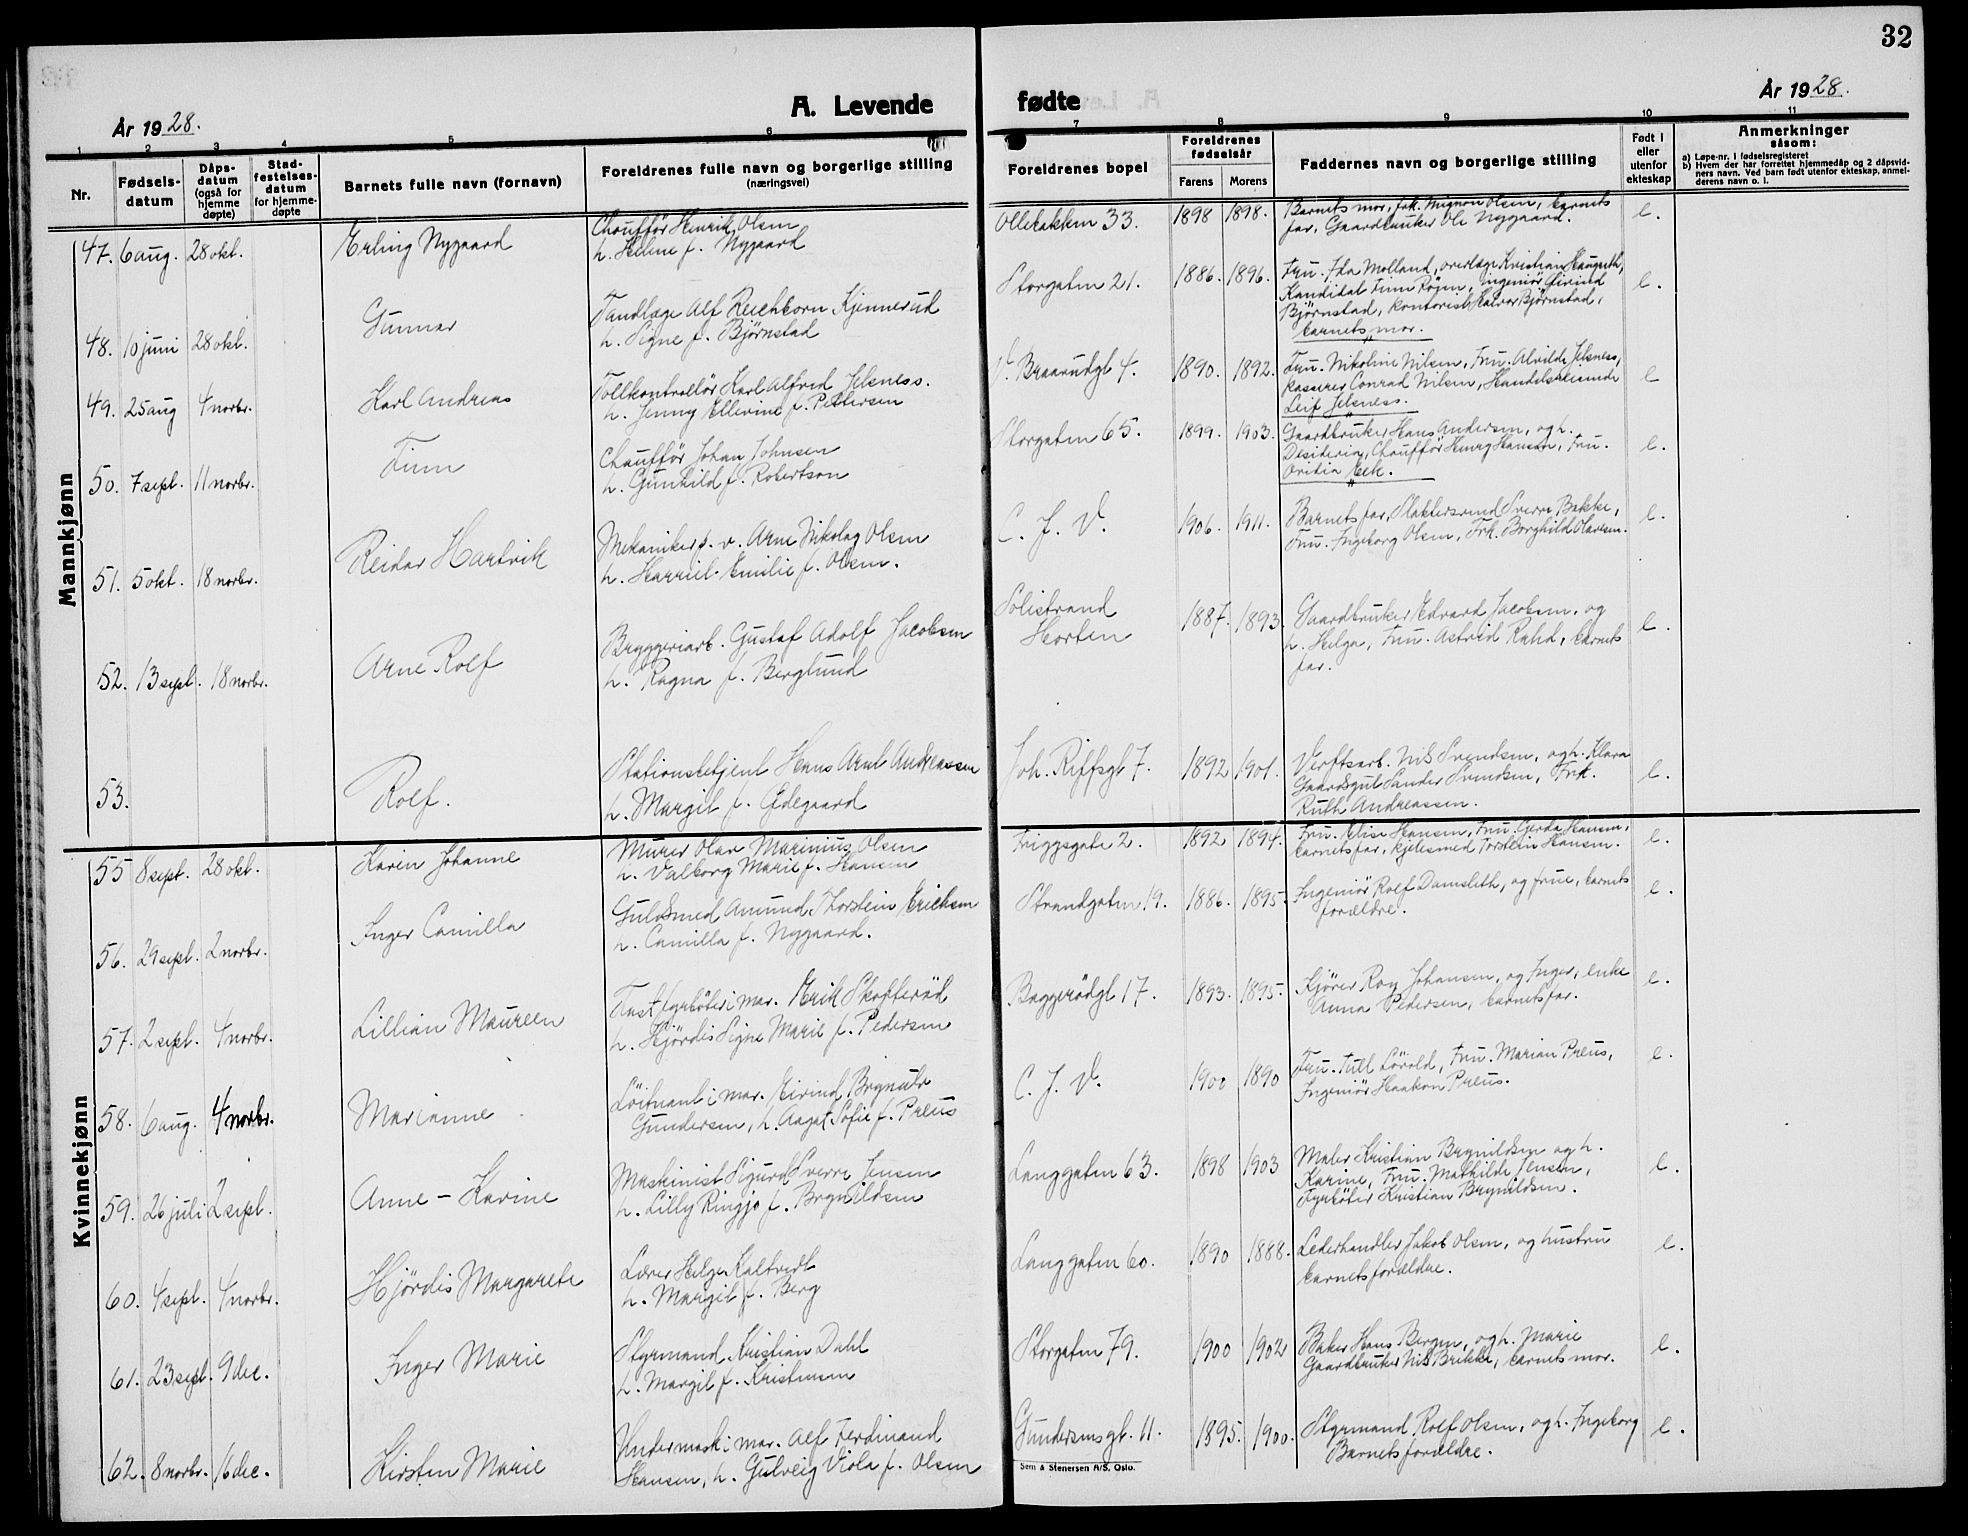 32
År 1928.
A. Levende
fødte
År 1928.
1 2 3 4 5 6 7 8 9 10 11
Nr.
Fødsels-
datum
Dåps-
datum
(også for
hjemme
døpte)
Stad-
festelses-
datum
for hjemme-
døpte
Barnets fulle navn (fornavn)
Foreldrenes fulle navn og borgerlige stilling
(næringsvei)
Foreldrenes bopel
Foreldrenes
fødselsår
Farens Morens
Faddernes navn og borgerlige stilling
Født i
eller
utenfor
ekteskap
Anmerkninger
såsom:
a) Løpe-nr. i fødselsregisteret
b) Hvem der har forrettet hjemmedåp og 2 dåpsvid-
ners navn. Ved barn født utenfor ekteskap, anmel-
derens navn o. l.
Mannkjønn
47. 6 aug. 28 okt. Erling Nygaard
Chauffør Henrik Olsen
h. Helene f. Nygaard
Ollebakken 33. 1898 1898.
Barnets mor, frk. Mignon Olsen, barnets
far, Gaardbruker Ole Nygaard.
e.
48. 10 juni 28 okt. Gunnar
Tandlæge Alf Reichborn Kjennerud
h. Signe f. Bjørnstad
Storgaten 21. 1886. 1896.
Fru. Ida Molland, overlæge Kristian Haugseth,
Kandidat Finn Røgen, Ingeniør Eivind
Bjørnstad, kontorist Halvor Bjørnstad,
barnets mor.
e.
49. 25 aug 4 novbr. Karl Andreas
Tollkontrollør Karl Alfred Jelsness.
h. Jenny Ellevine f. Pettersen
V. Braarudgt 4. 1890. 1892.
Fru. Nikoline Nilsen, Fru. Alvilde Jelsness,
kasserer Conrad Nilsen, Handelsreisende
Leif Jelsness.
e
50. 7 sept. 11 novbr. Finn
Chauffør Johan Johnsen
h. Gunhild f. Robertson
Storgaten 65. 1899. 1903.
Gaardbruker Hans Andersen, og h.
Desideria, Chauffør Henry Hansen, Fru.
Ovidia Eek.
e.
51. 5 okt. 18 novbr. Reidar Hartvik
Mekaniker p. v. Arne Nikolay Olsen
h. Harriet Emilie f. Olsen.
C. J. V. 1906. 1911.
Barnets far, Slaktersvend Sverre Bakke,
Fru. Ingeborg Olsen, Frk. Borghild Olavesen.
e.
52. 13 sept. 18 novbr. Arne Rolf
Bryggeriarb. Gustaf Adolf Jacobsen
h. Ragna f. Berglund
Solistrand
Horten
1887. 1893.
Gaardbruker Edvard Jacobsen, og
h. Helga, Fru. Astrid Rahd, barnets
far.
e.
53. Rolf.
Stationsbetjent Hans Arnt Andreassen
h. Margit f. Ødegaard
Joh. Riffsgt 7. 1892 1901.
Verftsarb. Nils Svendsen, og h. Klara
Gaardsgut Sander Svendsen, Frk.
Ruth Andreassen.
e.
Kvinnekjønn
55 8 sept. 28 okt. Karin Johanne
Murer Olav Marinius Olsen
h. Valborg Marie f. Hansen
Friggsgate 2. 1892 1894.
Fru. Elise Hansen, Fru. Gerda Hansen,
barnets far, kjelesmed Torstein Hansen.
e.
56. 29 sept. 2 novbr. Inger Camilla
Guldsmed Amund Thorstein Ericksen
h. Camilla f. Nygaard.
Strandgaten 19. 1886. 1895.
Ingeniør Rolf Damsleth, og frue, barnets
forældre.
e.
57. 2 sept. 4 novbr. Lillian Maureen
Fast fyrbøter i mar. Erik Skofterød
h. Hjørdis Signe Marie f. Pedersen
Baggerødgt 17. 1893. 1895.
Kjører Roy Johansen, og Inger, enke
Anna Pedersen, barnets far.
e.
58. 6 aug. 4 novbr. Marianne
Løitnant i mar. Eivind Brynulv
Gundersen, h. Aagot Sofie f. Preus
C. J. V. 1900 1890
Fru. Tull Løvold, Fru. Marian Preus,
Ingeniør Haakon Preus.
e.
59. 26 juli 2 sept. Anne - Karine
Maskinist Sigurd Sverre Jensen
h. Lilly Ringjo f. Brynildsen
Langgaten 63. 1898 1903
Maler Kristian Brynildsen og h.
Karine, Fru. Mathilde Jensen,
Fyrbøter Kristian Brynildsen.
e.
60. 4 sept. 4 novbr. Hjördis Margarete
Lærer Helge Kaltvedt
h. Margit f. Berg
Langgaten 60. 1890 1888.
Lederhandler Jakob Olsen, og hustru
barnets forældre.
e.
61. 23 sept. 9 dec. Inger Marie
Styrmand Kristian Dahl
h. Margit f. Kristensen
Storgaten 79. 1900 1902
Baker Hans Bergen, og h. Marie
Gaardbruker Nils Brekke, barnets mor.
e.
62. 8 novbr. 16 dec. Kirsten Marie
Undermask i mar. Alf Ferdinand
Hansen, h. Gulveig Viola f. Olsen
Gundersensgt. 11. 1895. 1900.
Styrmand Rolf Olsen, og h. Ingeborg
Barnets forældre.
e.
Sem & Stenersen A/S, Oslo.